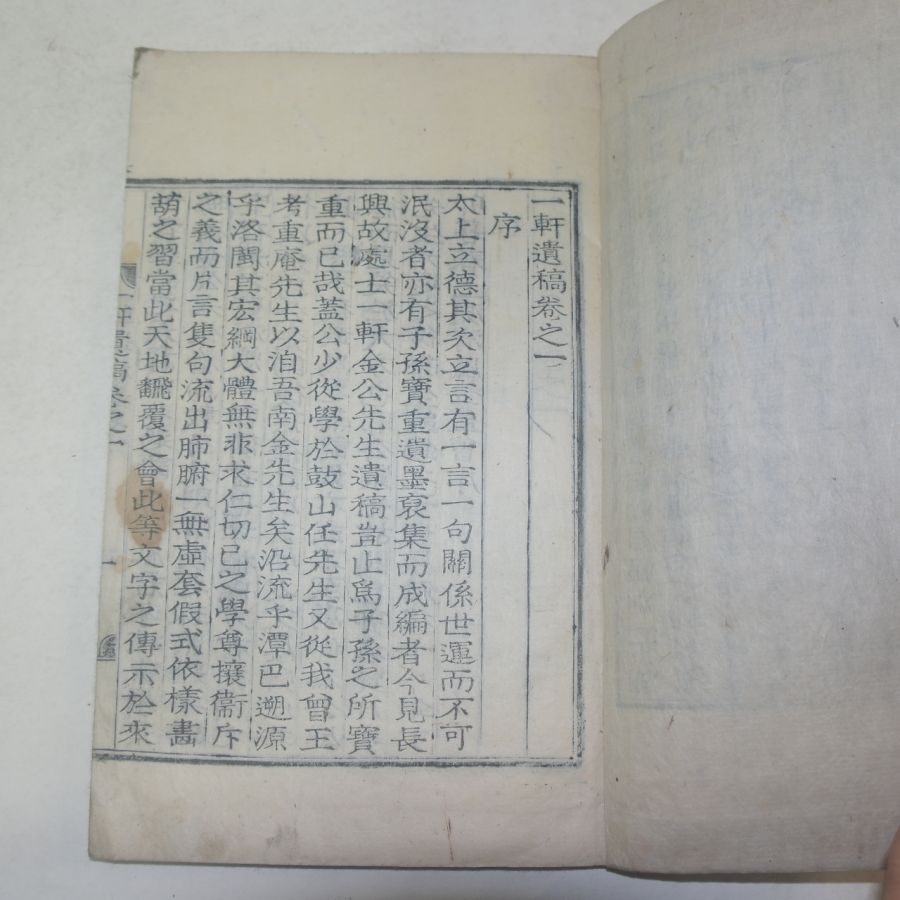 一軒遺稿卷之一
序
太上立德其次立言有一言一句關係世運而不可
泯沒者亦有子孫寶重遺墨裒集而成編者今見長
興故處士一軒金公先生遺稿豈止爲子孫之所寶
重而已哉蓋公少從學於鼓山任先生又從我曾王
考重庵先生以洎吾南金先生矣沿流乎潭巴遡源
乎洛閩其宏綱大體無非求仁切己之學尊攘衛斥
之義而片言隻句流出肺腑一無虛套假式依樣畵
葫之習當此天地飜覆之會此等文字之傳示於來
一軒遺稿卷之一
一